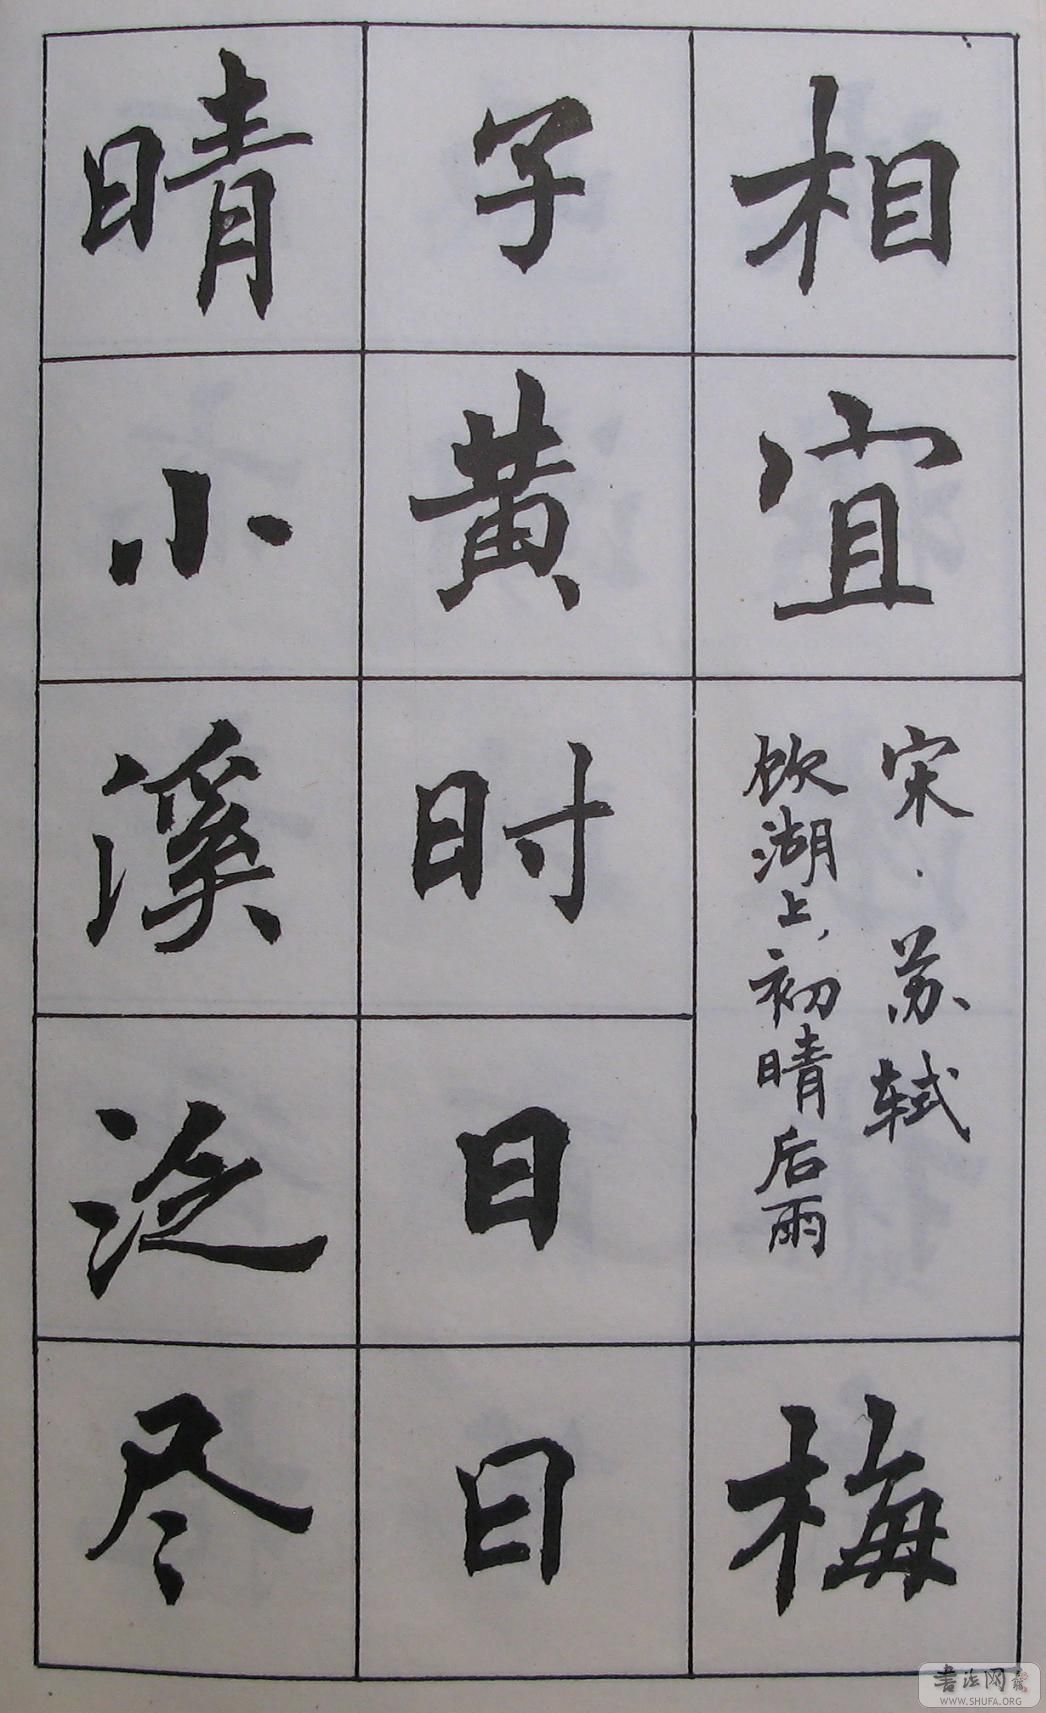 相宜
宋·苏轼
饮湖上,初晴后雨
梅
子黄时日日
晴小溪泛尽
书法网
WWW.SHUFA.ORG